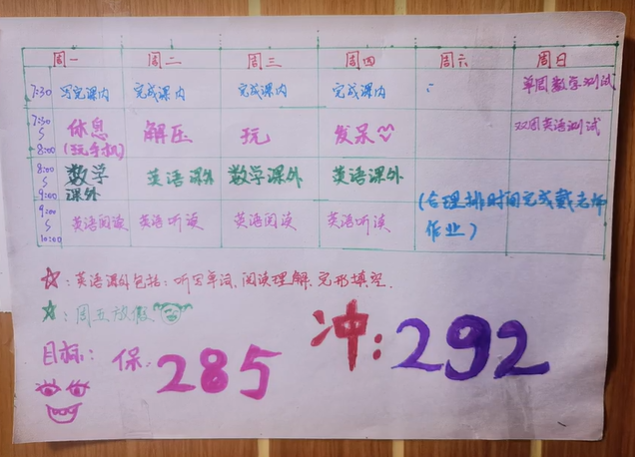 周一 周二 周三 周四 周六 周日
7:30 写完课内 完成课内 完成课内 完成课内 单周数学测试
7:30
~
8:00
休息
(玩手机)
解压 玩 发呆 双周英语测试
8:00
~
9:00
数学
课外
英语课外 数学课外 英语课外
9:00
~
10:00
英语阅读 英语听读 英语阅读 英语听读
(合理排时间完成戴老师
作业)
☆:英语课外包括:听写单词、阅读理解、完形填空.
☆:周五放假
目标: 保: 285 冲: 292